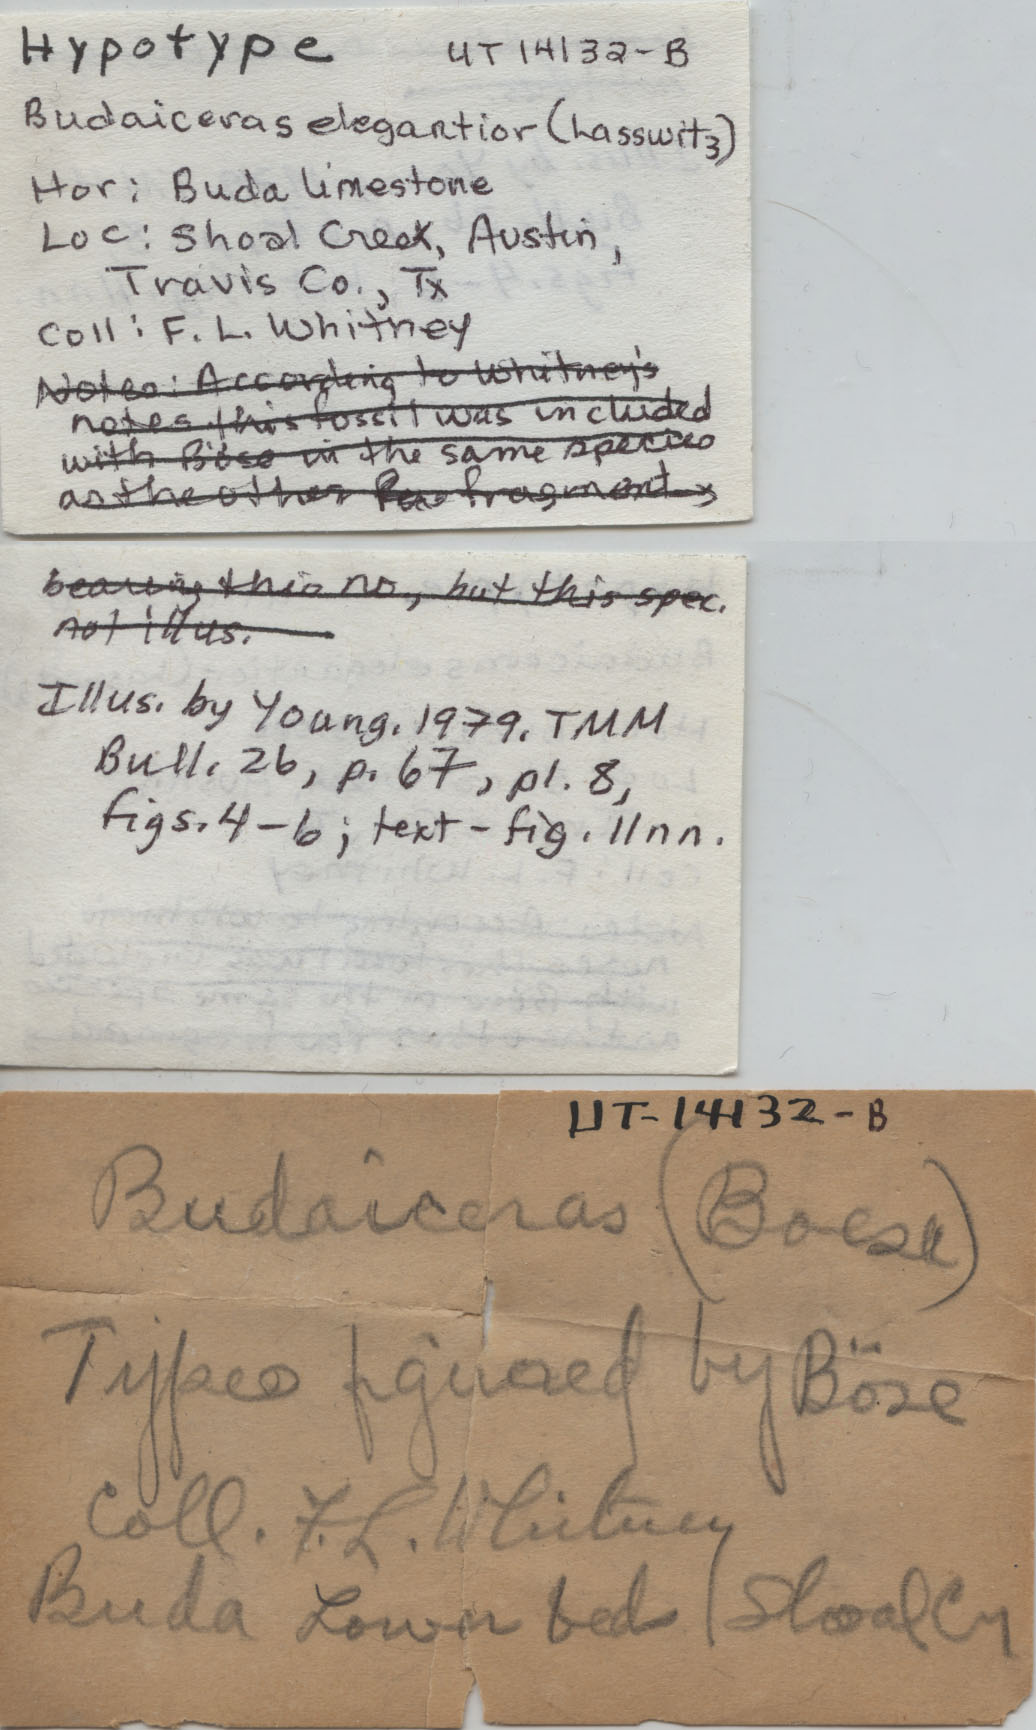 Hypotype UT 14132-B
Budaiceras elegantior (Lasswitz)
Hor: Buda limestone
Loc: Shoal Creek, Austin,
Travis Co., Tx
Coll: F. L. Whitney
Notes: According to Whitney's
notes this fossil was included
with Böse in the same species
as the other fragments
bearing this no, but this spec.
not illus.
Illus. by Young. 1979. TMM
Bull. 26, p. 67, pl. 8,
figs. 4-6; text-fig. 11nn.
UT-14132-B
Budaiceras (Boese)
Types figured by Böse
Coll. F. L. Whitney
Buda Lower bed (Shoal Cr